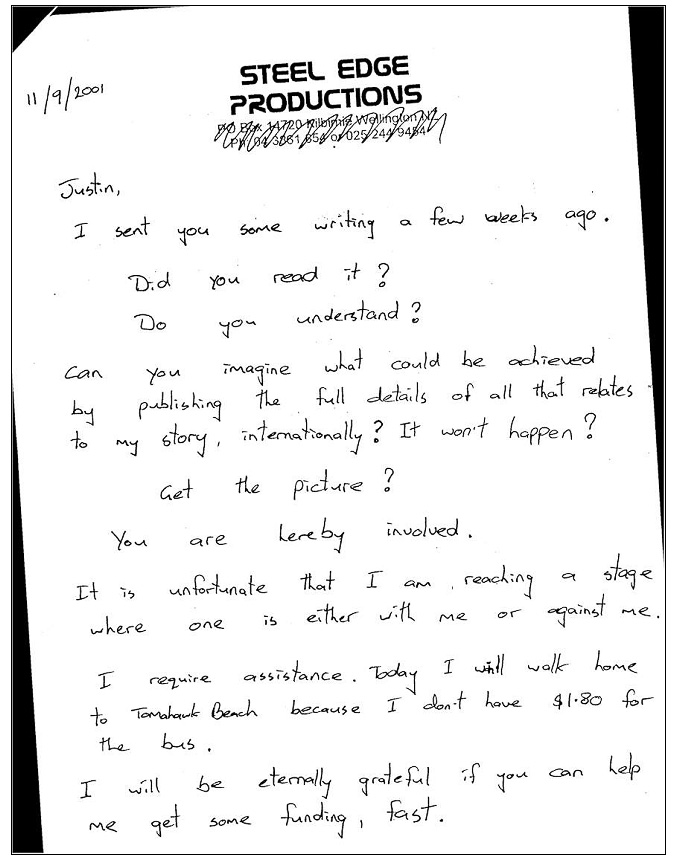 11/9/2001
STEEL EDGE
PRODUCTIONS
PO Box 14720 Kilbirnie Wellington NZ
Ph 04 3861 654 or 025 244 9484
Justin,
I sent you some writing a few weeks ago.
Did you read it?
Do you understand?
Can you imagine what could be achieved
by publishing the full details of all that relates
to my story, internationally? It won't happen?
Get the picture?
You are hereby involved.
It is unfortunate that I am reaching a stage
where one is either with me or against me.
I require assistance. Today I will walk home
to Tomahawk Beach because I don't have $1.80 for
the bus.
I will be eternally grateful if you can help
me get some funding, fast.